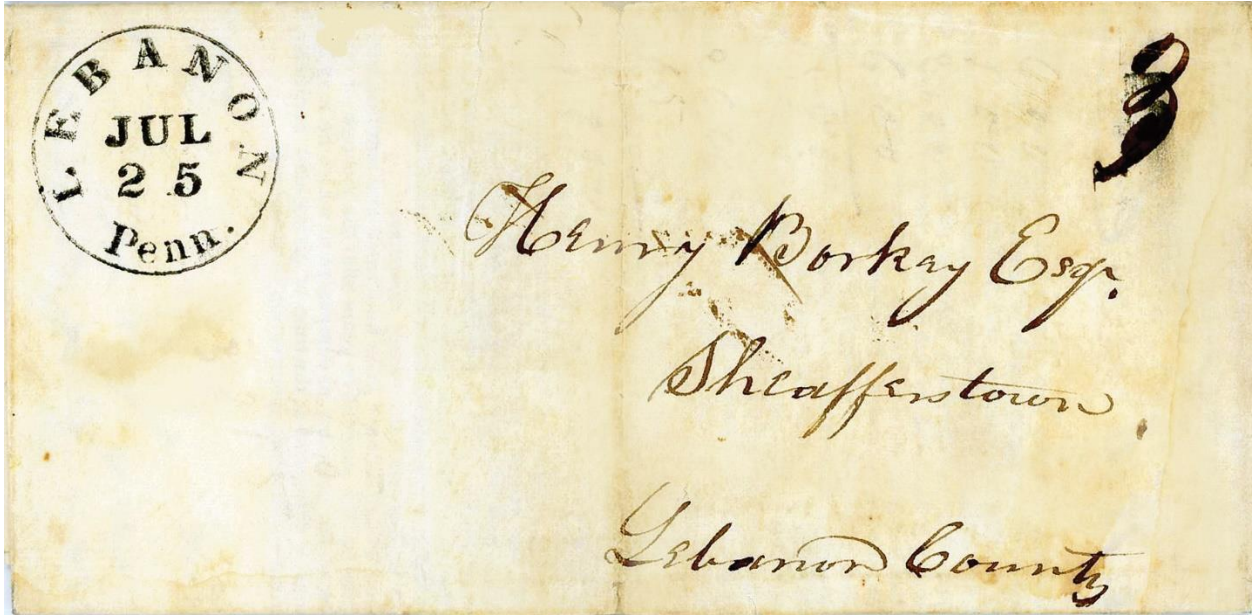 LEBANON
JUL
25
Penn.
3
Henry Borkey Esqr.
Sheafferstown
Lebanon County